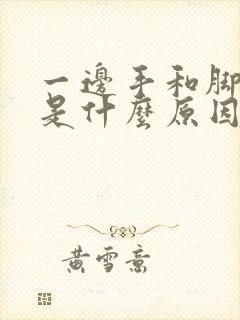 一邊手和腳
是什麼原因
黃雪意